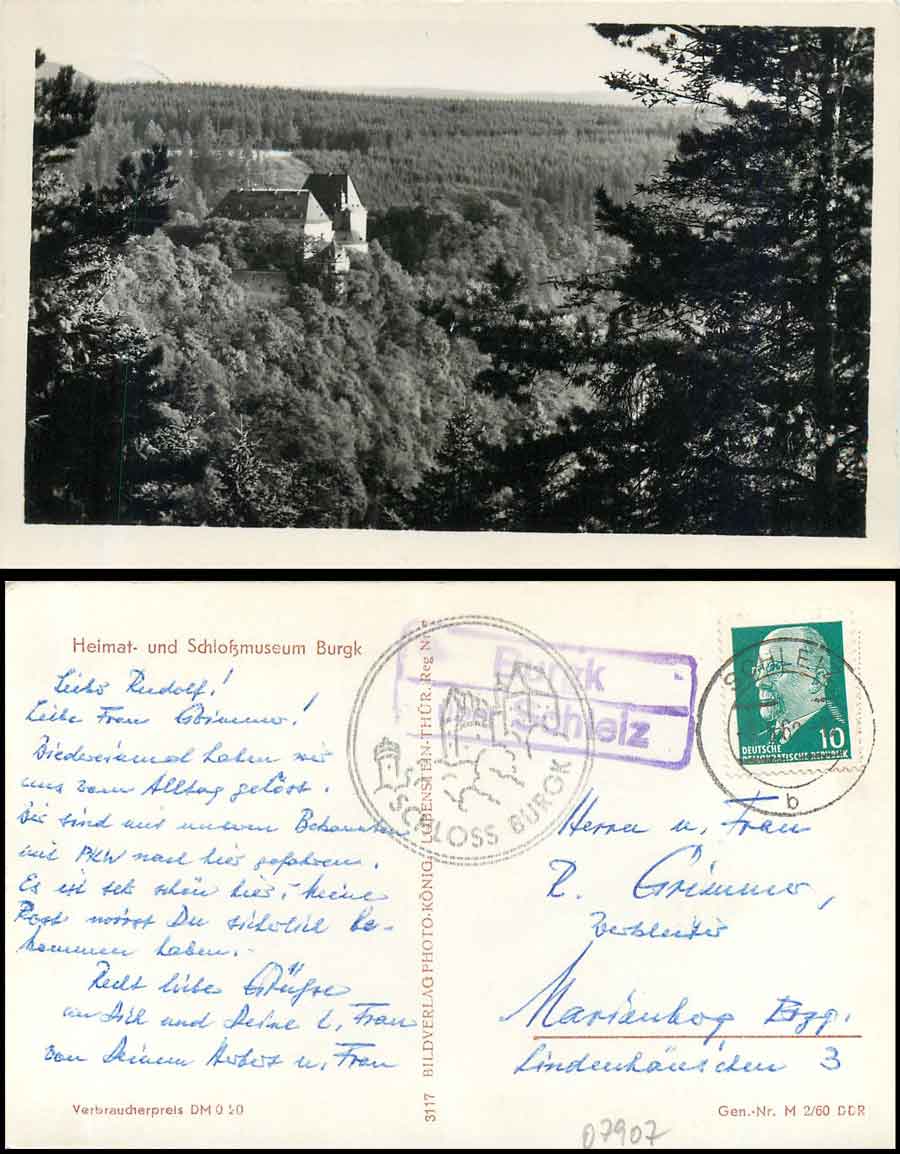 Heimat- und Schloßmuseum Burgk
Liebe Rudolf!
Liebe Frau Grimmer!
Wiedereinmal haben wir
uns vom Alltag gelöst.
Wir sind mit unseren Bekannten
mit PKW nach hier gefahren.
Es ist sehr schön hier, meine
Post wirst Du sicherlich be-
kommen haben.
Recht liebe Grüße
an Dich und Deine l. Frau
von Deinem Herbert u. Frau
Verbraucherpreis DM 0 20
3117 BILDVERLAG PHOTO-KÖNIG, LOBENSTEIN-THÜR. Reg Nr
SCHLOSS BURGK
Burgk
über Schleiz
SCHLEIZ
b
10
DEUTSCHE
DEMOKRATISCHE REPUBLIK
Herrn u. Frau
R. Grimmer,
Marienberg Erzg.
Lindenhäuschen 3
Gen.-Nr. M 2/60 DDR
07907